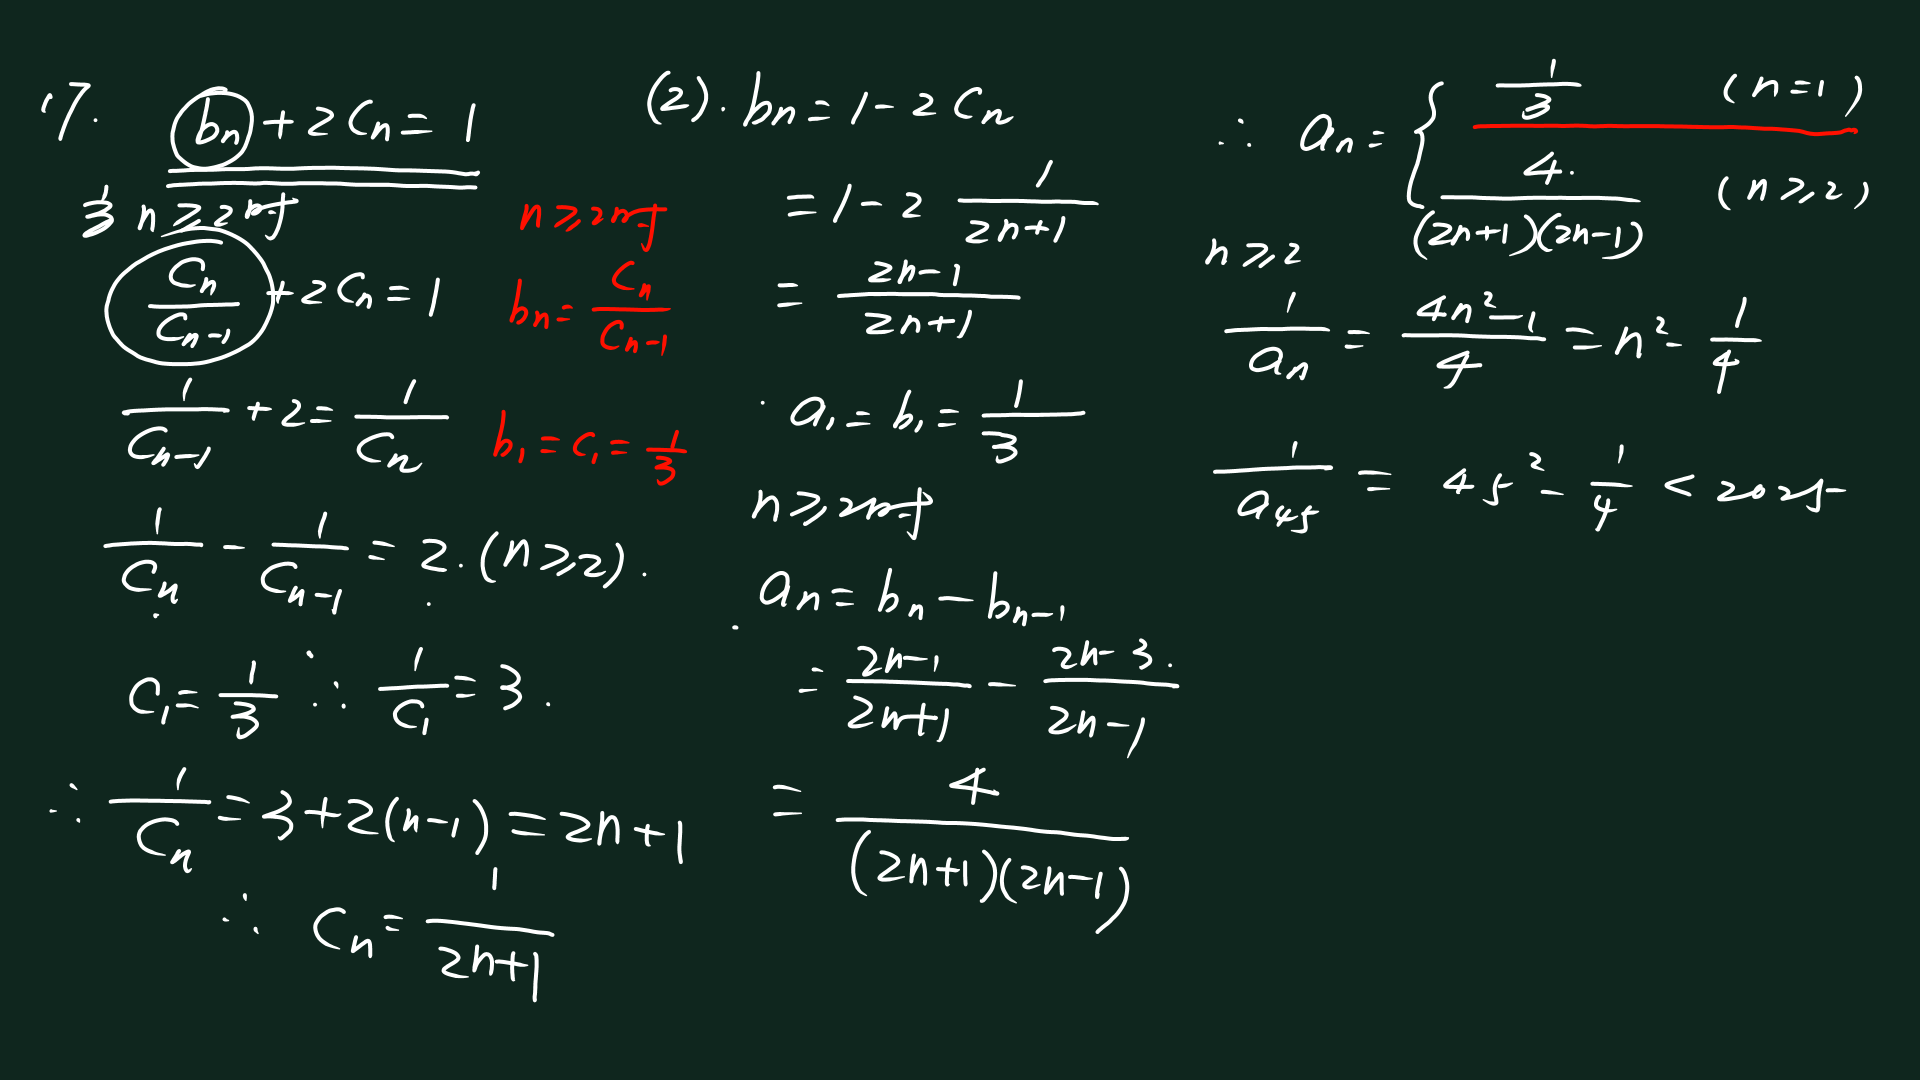 17. bₙ + 2Cₙ = 1
当 n ≥ 2时
Cₙ/Cₙ₋₁ + 2Cₙ = 1
1/Cₙ₋₁ + 2 = 1/Cₙ
1/Cₙ - 1/Cₙ₋₁ = 2. (n ≥ 2).
C₁ = 1/3 ∴ 1/C₁ = 3.
∴ 1/Cₙ = 3 + 2(n-1) = 2n+1
∴ Cₙ = 1/(2n+1)
n ≥ 2时
bₙ = Cₙ/Cₙ₋₁
b₁ = C₁ = 1/3
(2). bₙ = 1 - 2Cₙ
= 1 - 2 1/(2n+1)
= (2n-1)/(2n+1)
a₁ = b₁ = 1/3
n ≥ 2时
aₙ = bₙ - bₙ₋₁
= (2n-1)/(2n+1) - (2n-3)/(2n-1)
= 4/((2n+1)(2n-1))
∴ aₙ = { 1/3 (n=1)
4/((2n+1)(2n-1)) (n ≥ 2)
n ≥ 2
1/aₙ = (4n²-1)/4 = n² - 1/4
1/a₄₅ = 45² - 1/4 < 2025